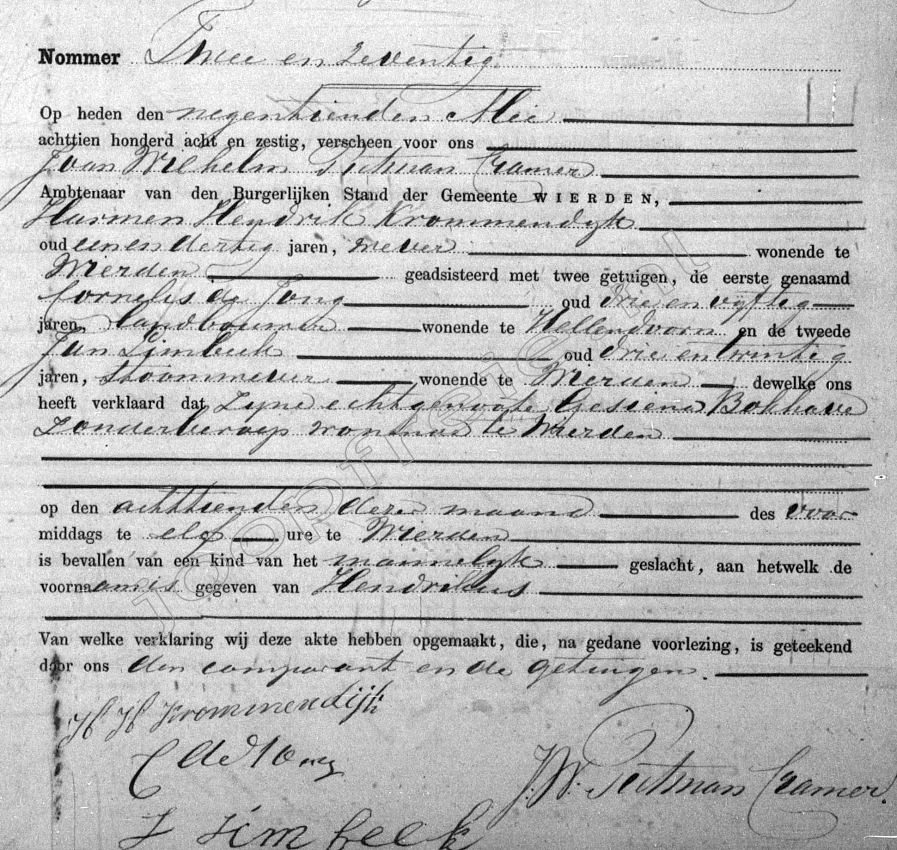 Nommer Twee en zeventig.
Op heden den negentienden Mei
achttien honderd acht en zestig, verscheen voor ons
Joan Wilhelm Putman Cramer
Ambtenaar van den Burgerlijken Stand der Gemeente WIERDEN,
Harmen Hendrik Krommendyk
oud eenendertig jaren, wever wonende te
Wierden geadsisteerd met twee getuigen, de eerste genaamd
Cornelis de Jong oud drie en vyftig
jaren, landbouwer wonende te Hellendoorn en de tweede
Jan Limbeek oud drie en twintig
jaren, stoomwever wonende te Wierden dewelke ons
heeft verklaard dat zyne echtgenoote, Gesiena Bokhove
zonder beroep wonende te Wierden
op den achttienden dezer maand des voor
middags te elf ure te Wierden
is bevallen van een kind van het mannelyk geslacht, aan hetwelk de
voornaam is gegeven van Hendrikus
Van welke verklaring wij deze akte hebben opgemaakt, die, na gedane voorlezing, is geteekend
door ons den comparant en de getuigen.
H H Krommendijk
C de Jong
J. W. Putman Cramer.
J Limbeek